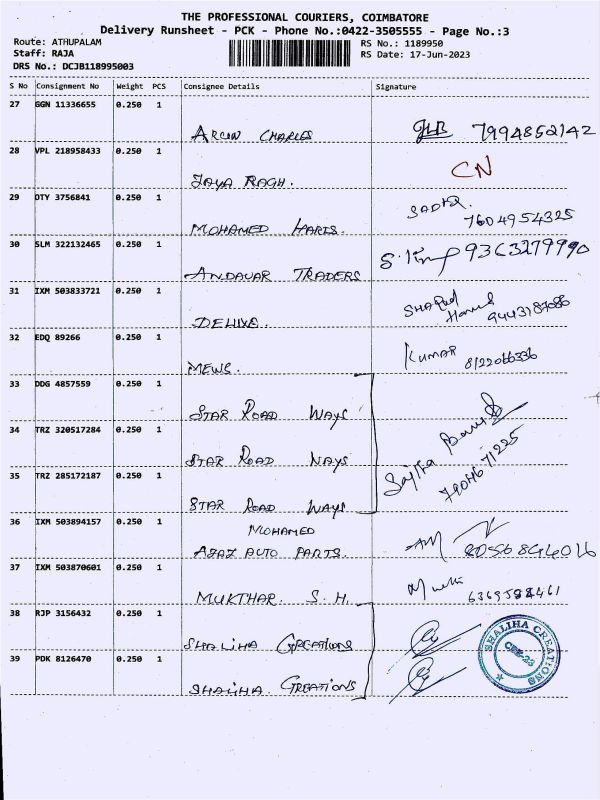 THE PROFESSIONAL COURIERS, COIMBATORE
Delivery Runsheet - PCK - Phone No.:0422-3505555 - Page No.:3
Route: ATHUPALAM RS No.: 1189950
Staff: RAJA RS Date: 17-Jun-2023
DRS No.: DCJB118995003
S No Consignment No Weight PCS Consignee Details Signature
27 GGN 11336655 0.250 1
ARUN CHARLES 7994852142
28 VPL 218958433 0.250 1
JAYA RAGH. CN
29 DTY 3756841 0.250 1
MOHAMED HARIS. SADIQ. 7604954325
30 SLM 322132465 0.250 1
ANDAVAR TRADERS 9363279990
31 IXM 503833721 0.250 1
DELUXE. 9443187086
32 EDQ 89266 0.250 1
MEWS. KUMAR 8122066336
33 DDG 4857559 0.250 1
STAR ROAD WAYS
34 TRZ 320517284 0.250 1
STAR ROAD WAYS
35 TRZ 285172187 0.250 1
STAR ROAD WAYS
36 IXM 503894157 0.250 1
MOHAMED
AJAZ AUTO PARTS.
37 IXM 503870601 0.250 1
MUKTHAR. S. H.
38 RJP 3156432 0.250 1
SHALIHA CREATIONS
39 PDK 8126470 0.250 1
SHALIHA. CREATIONS
SHALIHA CREATIONS